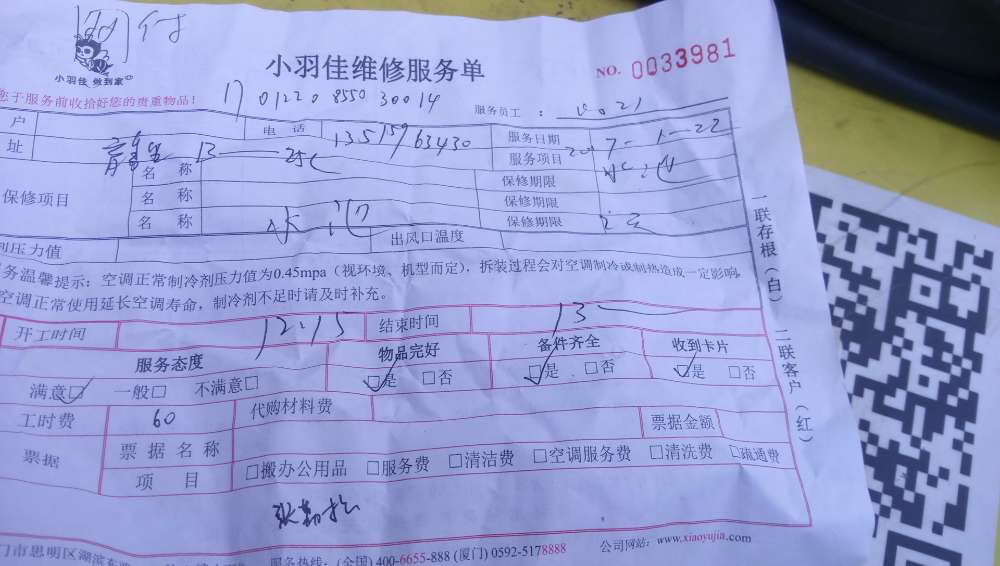 付
小羽佳 做到家
小羽佳维修服务单
NO. 0033981
您于服务前收拾好您的贵重物品！
01220 8550 30014
服务员工 ：
户
电 话
13515963430
服务日期
7-1-22
址
服务项目
名 称
保修期限
保修项目
名 称
保修期限
名 称
保修期限
剂压力值
出风口温度
务温馨提示：空调正常制冷剂压力值为0.45mpa（视环境、机型而定），拆装过程会对空调制冷或制热造成一定影响。
空调正常使用延长空调寿命，制冷剂不足时请及时补充。
开工时间
12:15
结束时间
13
服务态度
物品完好
备件齐全
收到卡片
满意□ 一般□ 不满意□
□是 □否
□是 □否
□是 □否
工时费
60
代购材料费
票据金额
票据
票据名称
项 目
□搬办公用品 □服务费 □清洁费 □空调服务费 □清洗费 □疏通费
门市思明区湖滨东路
服务热线：(全国) 400-6655-888 (厦门) 0592-5178888
公司网站：www.xiaoyujia.com
一联存根（白） 二联客户（红）